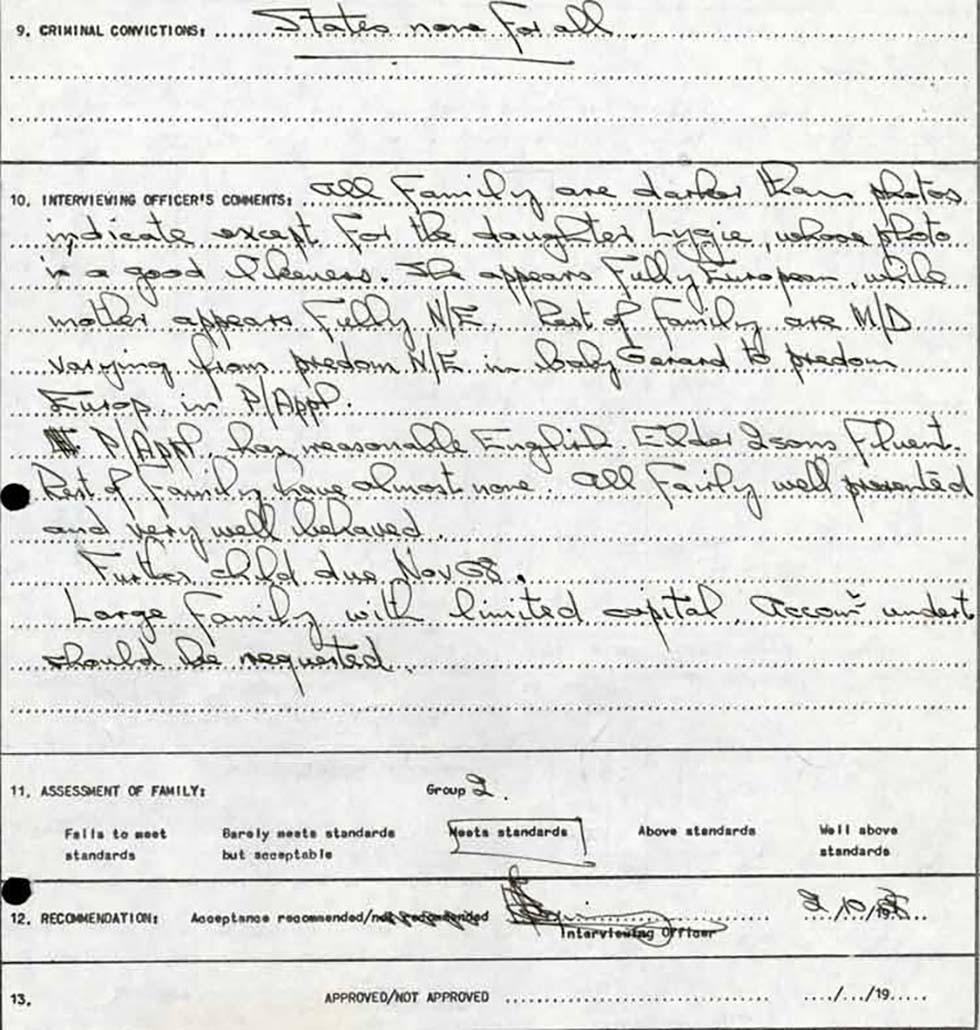 9. CRIMINAL CONVICTIONS: States none for all
10. INTERVIEWING OFFICER'S COMMENTS: All Family are darker than photos
indicate except for the daughter Lygie, whose photo
is a good likeness. She appears Fully European, while
mother appears Fully N/E. Rest of family are M/D
varying from predom N/E in baby Gerard to predom
Europ. in P/Appl.
P/Appl. has reasonable English. Elder 2 sons fluent.
Rest of family have almost none. All Fairly well presented
and very well behaved.
Further child due Nov 68.
Large Family with limited capital. Accom undert
should be requested.
11. ASSESSMENT OF FAMILY: Group 2.
Fails to meet standards Barely meets standards but acceptable Meets standards Above standards Well above standards
12. RECOMMENDATION: Acceptance recommended/not recommended
Interviewing Officer
13. APPROVED/NOT APPROVED .../.../19.....